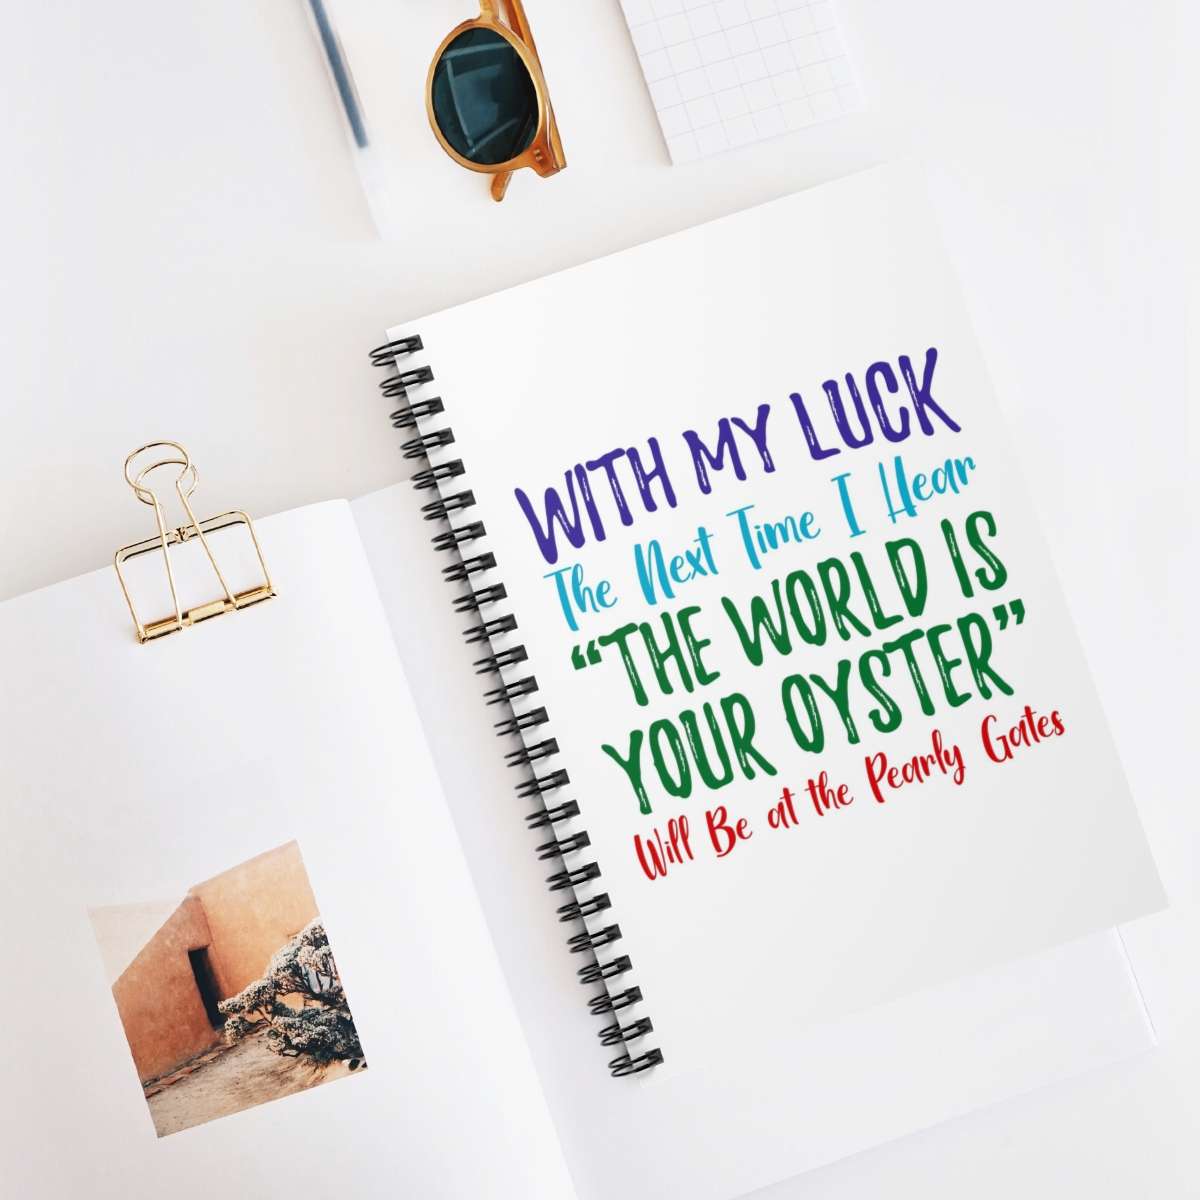 WITH MY LUCK
The Next Time I Hear
“THE WORLD IS
YOUR OYSTER”
Will Be at the Pearly Gates